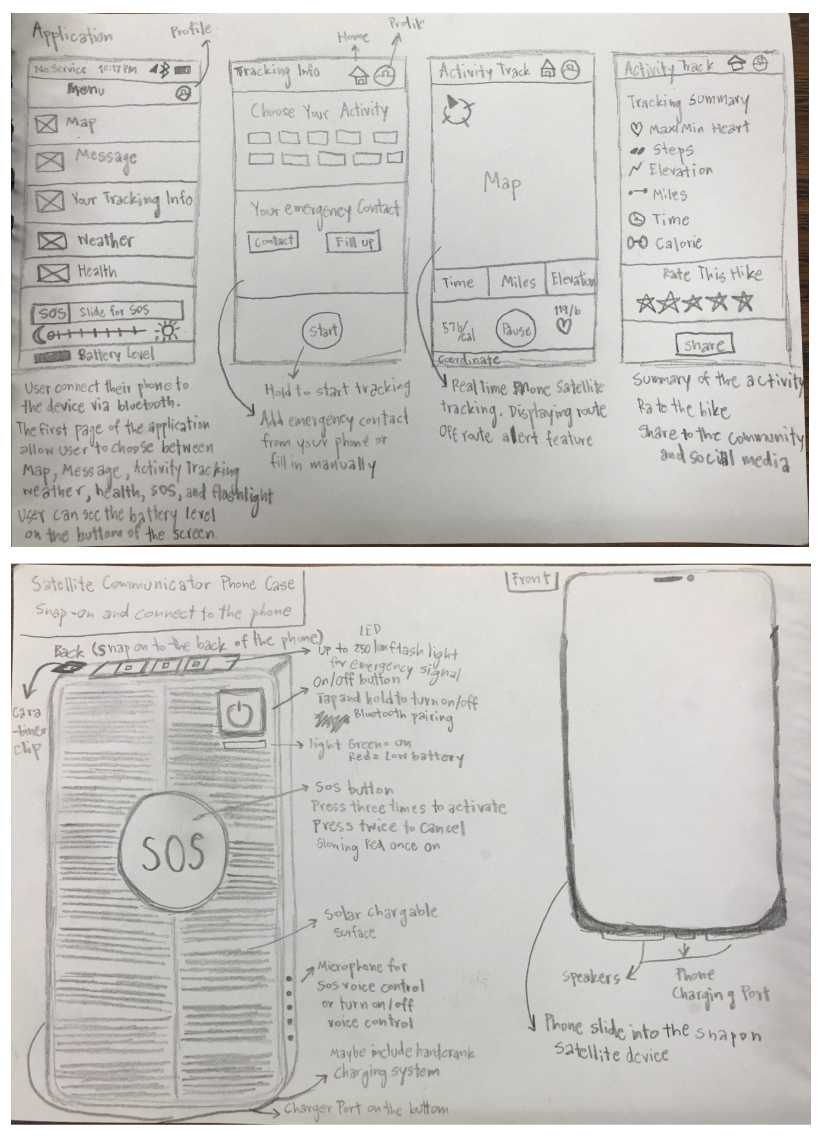 Application
Profile
No Service 10:37 PM
Menu
Map
Message
Your Tracking Info
Weather
Health
SOS Slide for SOS
Battery Level
User connect their phone to
the device via bluetooth.
The first page of the application
allow user to choose between
Map, Message, Activity Tracking
weather, health, SOS, and flashlight
User can see the battery level
on the buttom of the screen.
Home
Profile
Tracking Info
Choose Your Activity
Your emergency Contact
Contact
Fill up
Start
Hold to start tracking
Add emergency contact
from your phone or
fill in manually
Activity Track
Map
Time Miles Elevation
/cal
Pause
Coordinate
Real time Phone Satellite
tracking. Displaying route
Off route alert feature
Activity Track
Tracking Summary
Max/Min Heart
Steps
Elevation
Miles
Time
Calorie
Rate This Hike
Share
Summary of the activity
Rate the hike
Share to the community
and social media
Satellite Communicator Phone Case
Snap-on and connect to the phone
Back (Snap on to the back of the phone)
LED
Up to 250 lum flash light
for emergency signal
On/Off button
Tap and hold to turn on/off
Bluetooth pairing
light Green = on
Red = Low battery
Cara
-biner
clip
SOS button
Press three times to activate
Press twice to Cancel
Glowing Red once on
SOS
Solar chargable
surface
Microphone for
SOS voice control
or turn on/off
voice control
Maybe include handcrank
Charging system
Charger Port on the buttom
Front
Speakers
Phone
Charging Port
Phone slide into the snap on
satellite device